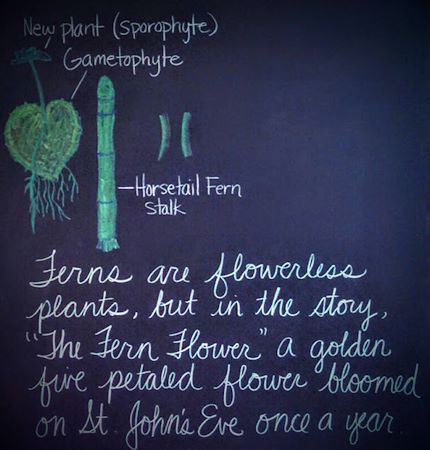 New plant (sporophyte)
Gametophyte
Horsetail Fern
Stalk
Ferns are flowerless
plants, but in the story,
"The Fern Flower" a golden
five petaled flower bloomed
on St. John's Eve once a year.